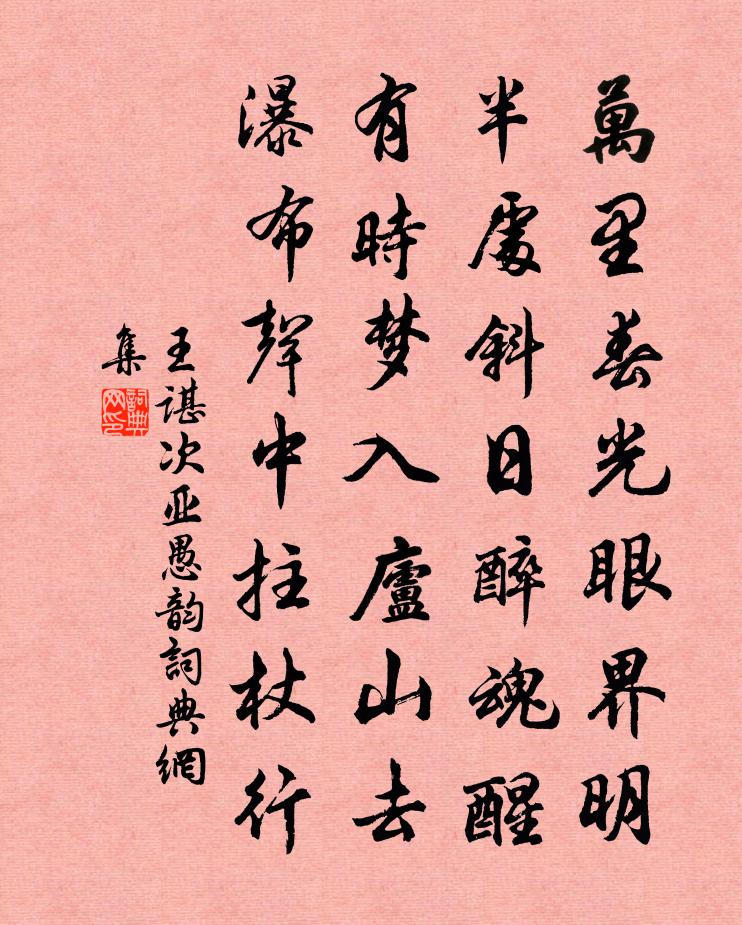 萬里春光眼界明
半處斜日醉魂醒
有時梦入廬山去
瀑布聲中拄杖行
王諶次亚愚韵詞典網
集
詞典网印